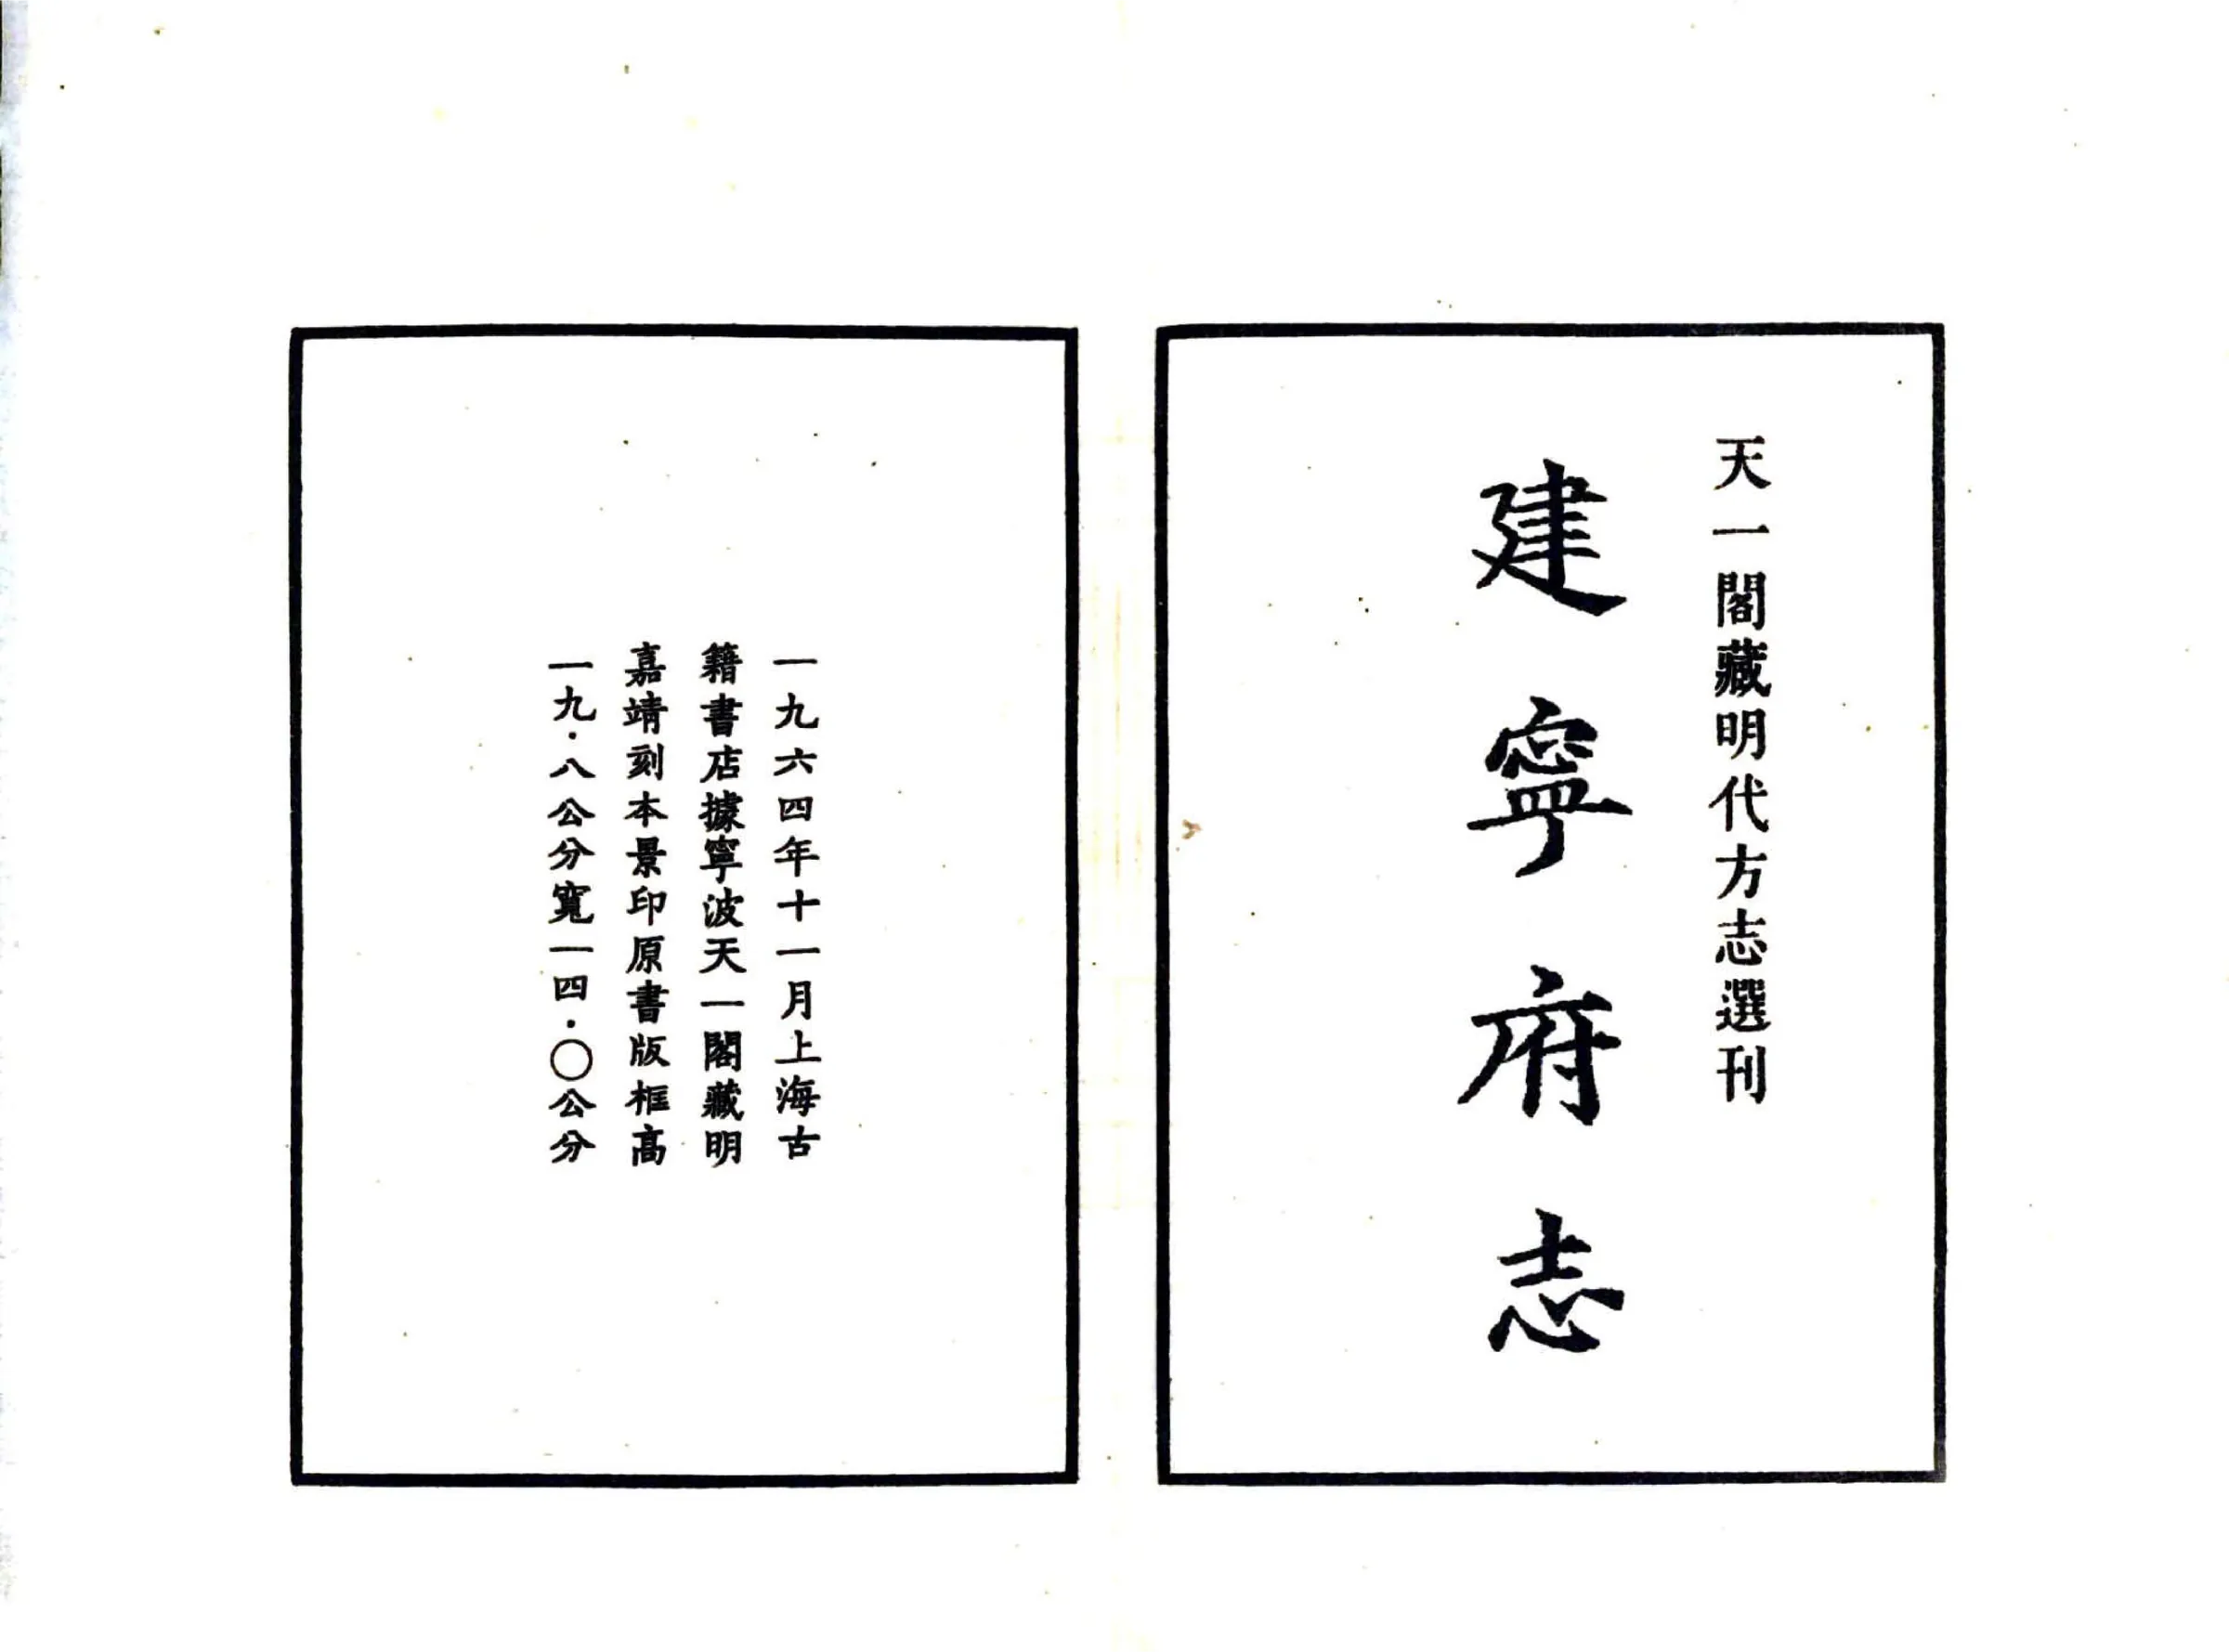 天一閣藏明代方志選刊
建寧府志
一九六四年十一月上海古
籍書店據寧波天一閣藏明
嘉靖刻本景印原書版框高
一九·八公分寬一四·〇公分